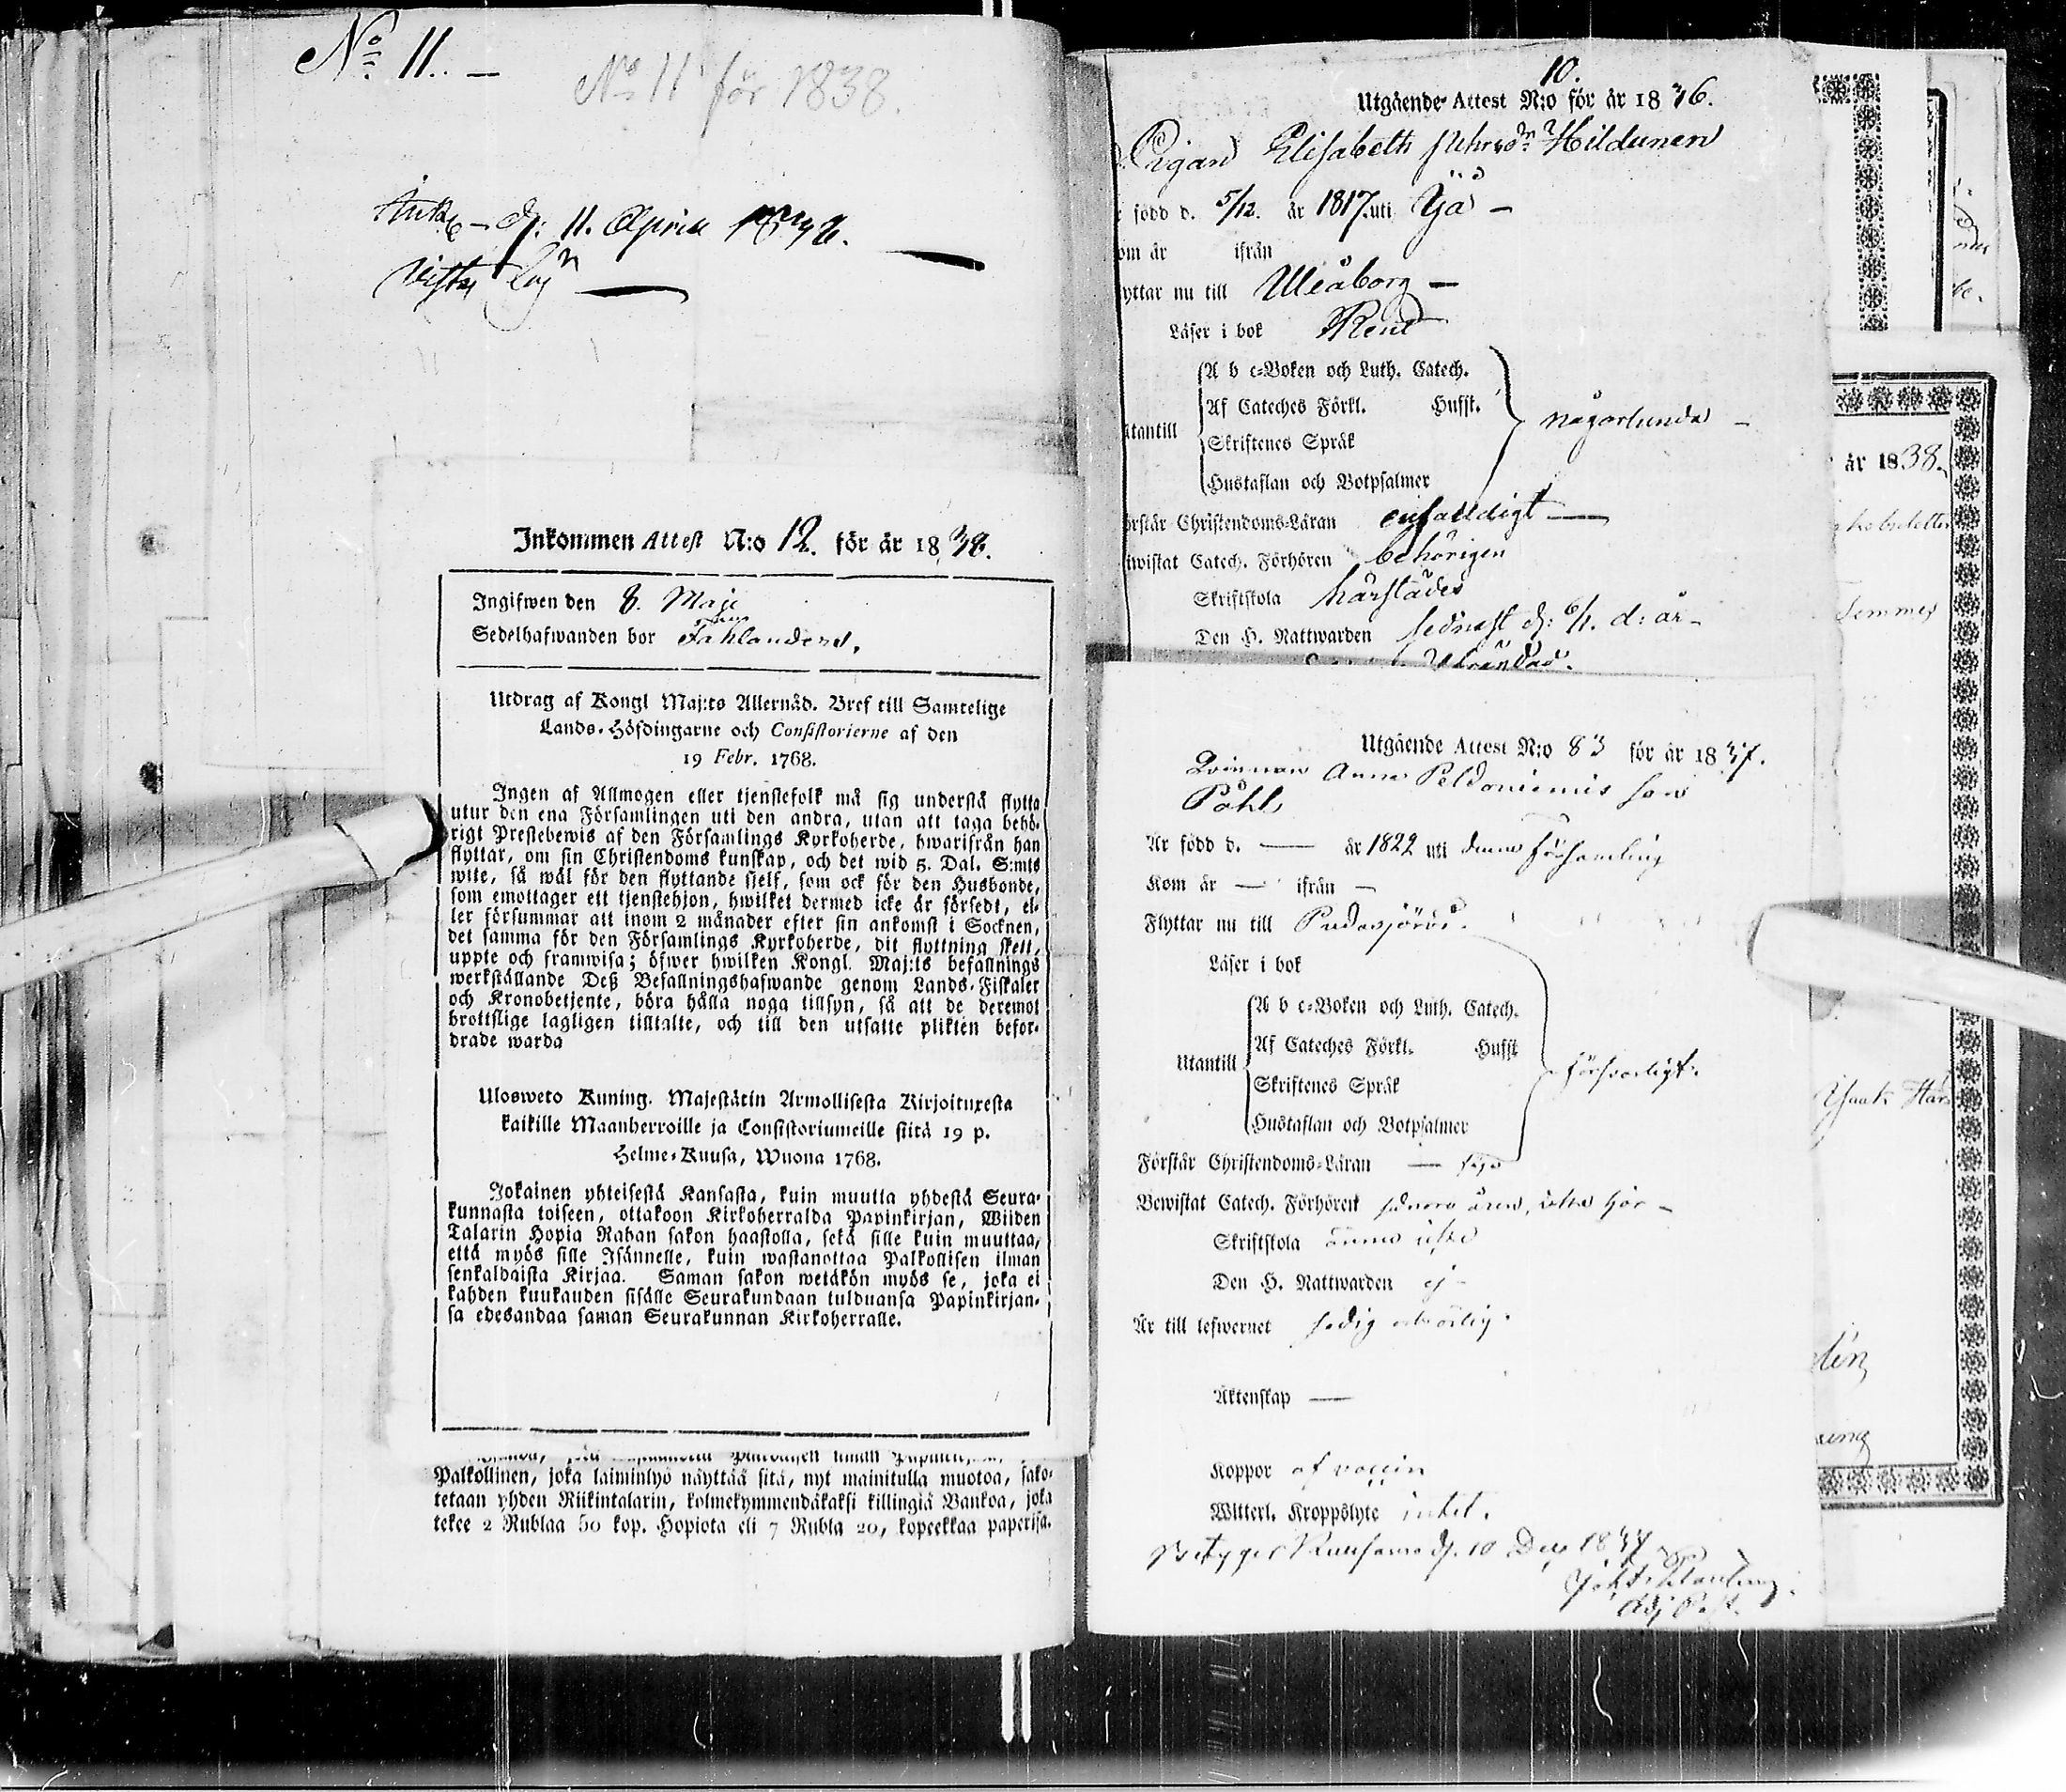 No 11. —
No 11 för 1838.
d. 11. April 1838.
Inkommen Attest N:o 12. för år 1838.
Ingifwen den 8. Maji
Sedelhafwanden bor Fahlander
Utdrag af Kongl Maj:ts Allernåd. Bref till Samtelige
Lands-Höfdingarne och Consistorierne af den
19 Febr. 1768.
Ingen af Allmogen eller tjenstefolk må sig understå flytta
utur den ena Församlingen uti den andra, utan att taga behö-
rigt Prestebewis af den Församlings Kyrkoherde, hwarifrån han
flyttar, om sin Christendoms kunskap, och det wid 5. Dal. S:mts
wite, så wäl för den flyttande sjelf, som ock för den Husbonde,
som emottager ett tjenstehjon, hwilket dermed icke är försedt, el-
ler försummar att inom 2 månader efter sin ankomst i Socknen,
det samma för den Församlings Kyrkoherde, dit flyttning skett,
uppte och framwisa; öfwer hwilken Kongl. Maj:ts befallnings
werkställande Deß Befallningshafwande genom Lands-Fiskaler
och Kronobetjente, böra hålla noga tillsyn, så att de deremot
brottslige lagligen tilltalte, och till den utsatte plikten befor-
drade warda
Ulosweto Kuning. Majestätin Armollisesta Kirjoituxesta
kaikille Maanherroille ja Consistoriumeille siitä 19 p.
Helme-Kuusa, Wuona 1768.
Jokainen yhteisestä Kansasta, kuin muutta yhdestä Seura-
kunnasta toiseen, ottakoon Kirkoherralda Papinkirjan, Wiiden
Talarin Hopia Rahan sakon haastolla, sekä sille kuin muuttaa,
että myös sille Isännelle, kuin wastanottaa Palkollisen ilman
senkaldaista Kirjaa. Saman sakon wetäkön myös se, joka ei
kahden kuukauden sisälle Seurakundaan tulduansa Papinkirjan-
sa edesandaa saman Seurakunnan Kirkoherralle.
Palkollinen, joka laiminlyö näyttää sitä, nyt mainitulla muotoa, sako-
tetaan yhden Riikintalarin, kolmekymmendäkaksi killingiä Bankoa, joka
tekee 2 Rublaa 50 kop. Hopiota eli 7 Rubla 20, kopeekkaa paperisa.
10.
Utgående Attest N:o för år 1836.
Pigan Elisabeth Hildunen
född d. 5/12. år 1817. uti Ijå —
om år ifrån
yttar nu till Uleåborg —
Läser i bok Rent
A b c-Boken och Luth. Catech.
Af Cateches Förkl. Husst.
tantill
Skriftenes Språk
någorlunda —
Hustaflan och Botpsalmer
rstår Christendoms-Läran enfaldigt —
wistat Catech. Förhören behörigen
Skriftskola härstädes
Den H. Nattwarden sednast d: 6/1. d: år —
Utgående Attest N:o 83 för år 1837.
Qvinnan Anna Peldoniemis son
Påhl
Är född d. — år 1822 uti denna Församling
Kom år — ifrån —
Flyttar nu till Pudasjärvi.
Läser i bok
A b c-Boken och Luth. Catech.
Af Cateches Förkl. Husst
Utantill
Skriftenes Språk
försvarligt.
Hustaflan och Botpsalmer
Förstår Christendoms-Läran —
Bewistat Catech. Förhören
Skriftskola ännu icke
Den H. Nattwarden ej —
Är till lefwernet
Äktenskap —
Koppor af vaccin
Witterl. Kroppslyte intet.
Betygar Kuusamo d. 10 Dec 1837
år 1838.